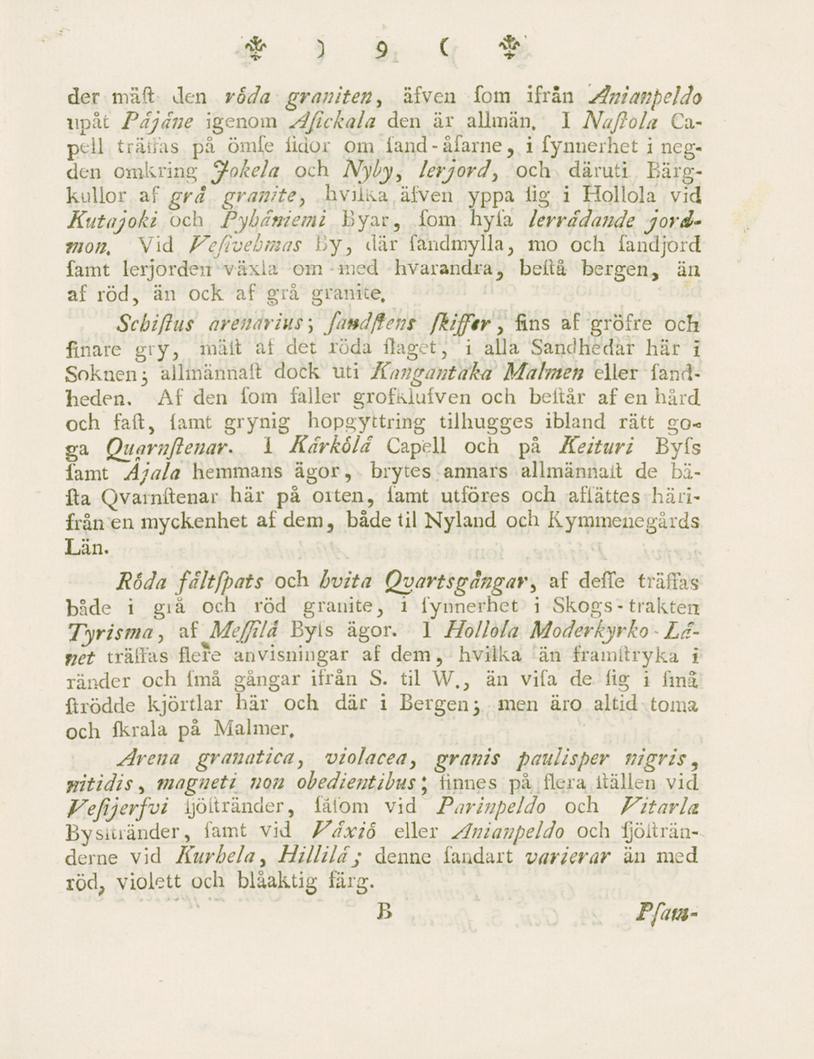 ) 9 (
der mäſt den röda graniten, äfven ſom ifrån Anianpeldo
upåt Pájáne igenom Aſickala den är allmän. I Naſtola Ca-
pell träffas på ömſe ſidor om ſand-åſarne, i ſynnerhet i neg-
den omkring Jokela och Nyby, lerjord, och däruti Bärg-
kullor af grå granite, hvilka äfven yppa ſig i Hollola vid
Kutajoki och Pyhäniemi Byar, ſom hyſa lerrådande jord-
mon. Vid Veſivehmas By, där ſandmylla, mo och ſandjord
ſamt lerjorden växla om med hvarandra, beſtå bergen, än
af röd, än ock af grå granite.
Schiſtus arenarius; ſandſtens ſkiffer, fins af gröfre och
finare gry, mäſt af det röda ſlaget, i alla Sandhedar här i
Soknen; allmännaſt dock uti Kangantaka Malmen eller ſand-
heden. Af den ſom faller grofklufven och beſtår af en hård
och faſt, ſamt grynig hopgyttring tilhugges ibland rätt go-
ga Quarnſtenar. I Kärkölä Capell och på Keituri Byſs
ſamt Äjala hemmans ägor, brytes annars allmännaſt de bä-
ſta Qvarnſtenar här på orten, ſamt utföres och aflättes häri-
från en myckenhet af dem, både til Nyland och Kymmenegårds
Län.
Röda fältſpats och hvita Qvartsgångar, af deſſe träffas
både i grå och röd granite, i ſynnerhet i Skogs-trakten
Tyrisma, af Meſſilä Byſs ägor. I Hollola Moderkyrko-Lä-
net träffas flere anvisningar af dem, hvilka än framſtryka i
ränder och ſmå gångar ifrån S. til W., än viſa de ſig i ſmå
ſtrödde kjörtlar här och där i Bergen; men äro altid toma
och ſkrala på Malmer.
Arena granatica, violacea, granis paulisper nigris,
nitidis, magneti non obedientibus; finnes på flera ſtällen vid
Veſijerfvi ſjöſtränder, ſåſom vid Parinpeldo och Vitarla
Byſtränder, ſamt vid Växiö eller Anianpeldo och ſjöſträn-
derne vid Kurhela, Hillilä; denne ſandart varierar än med
röd, violett och blåaktig färg.
B Pſam-